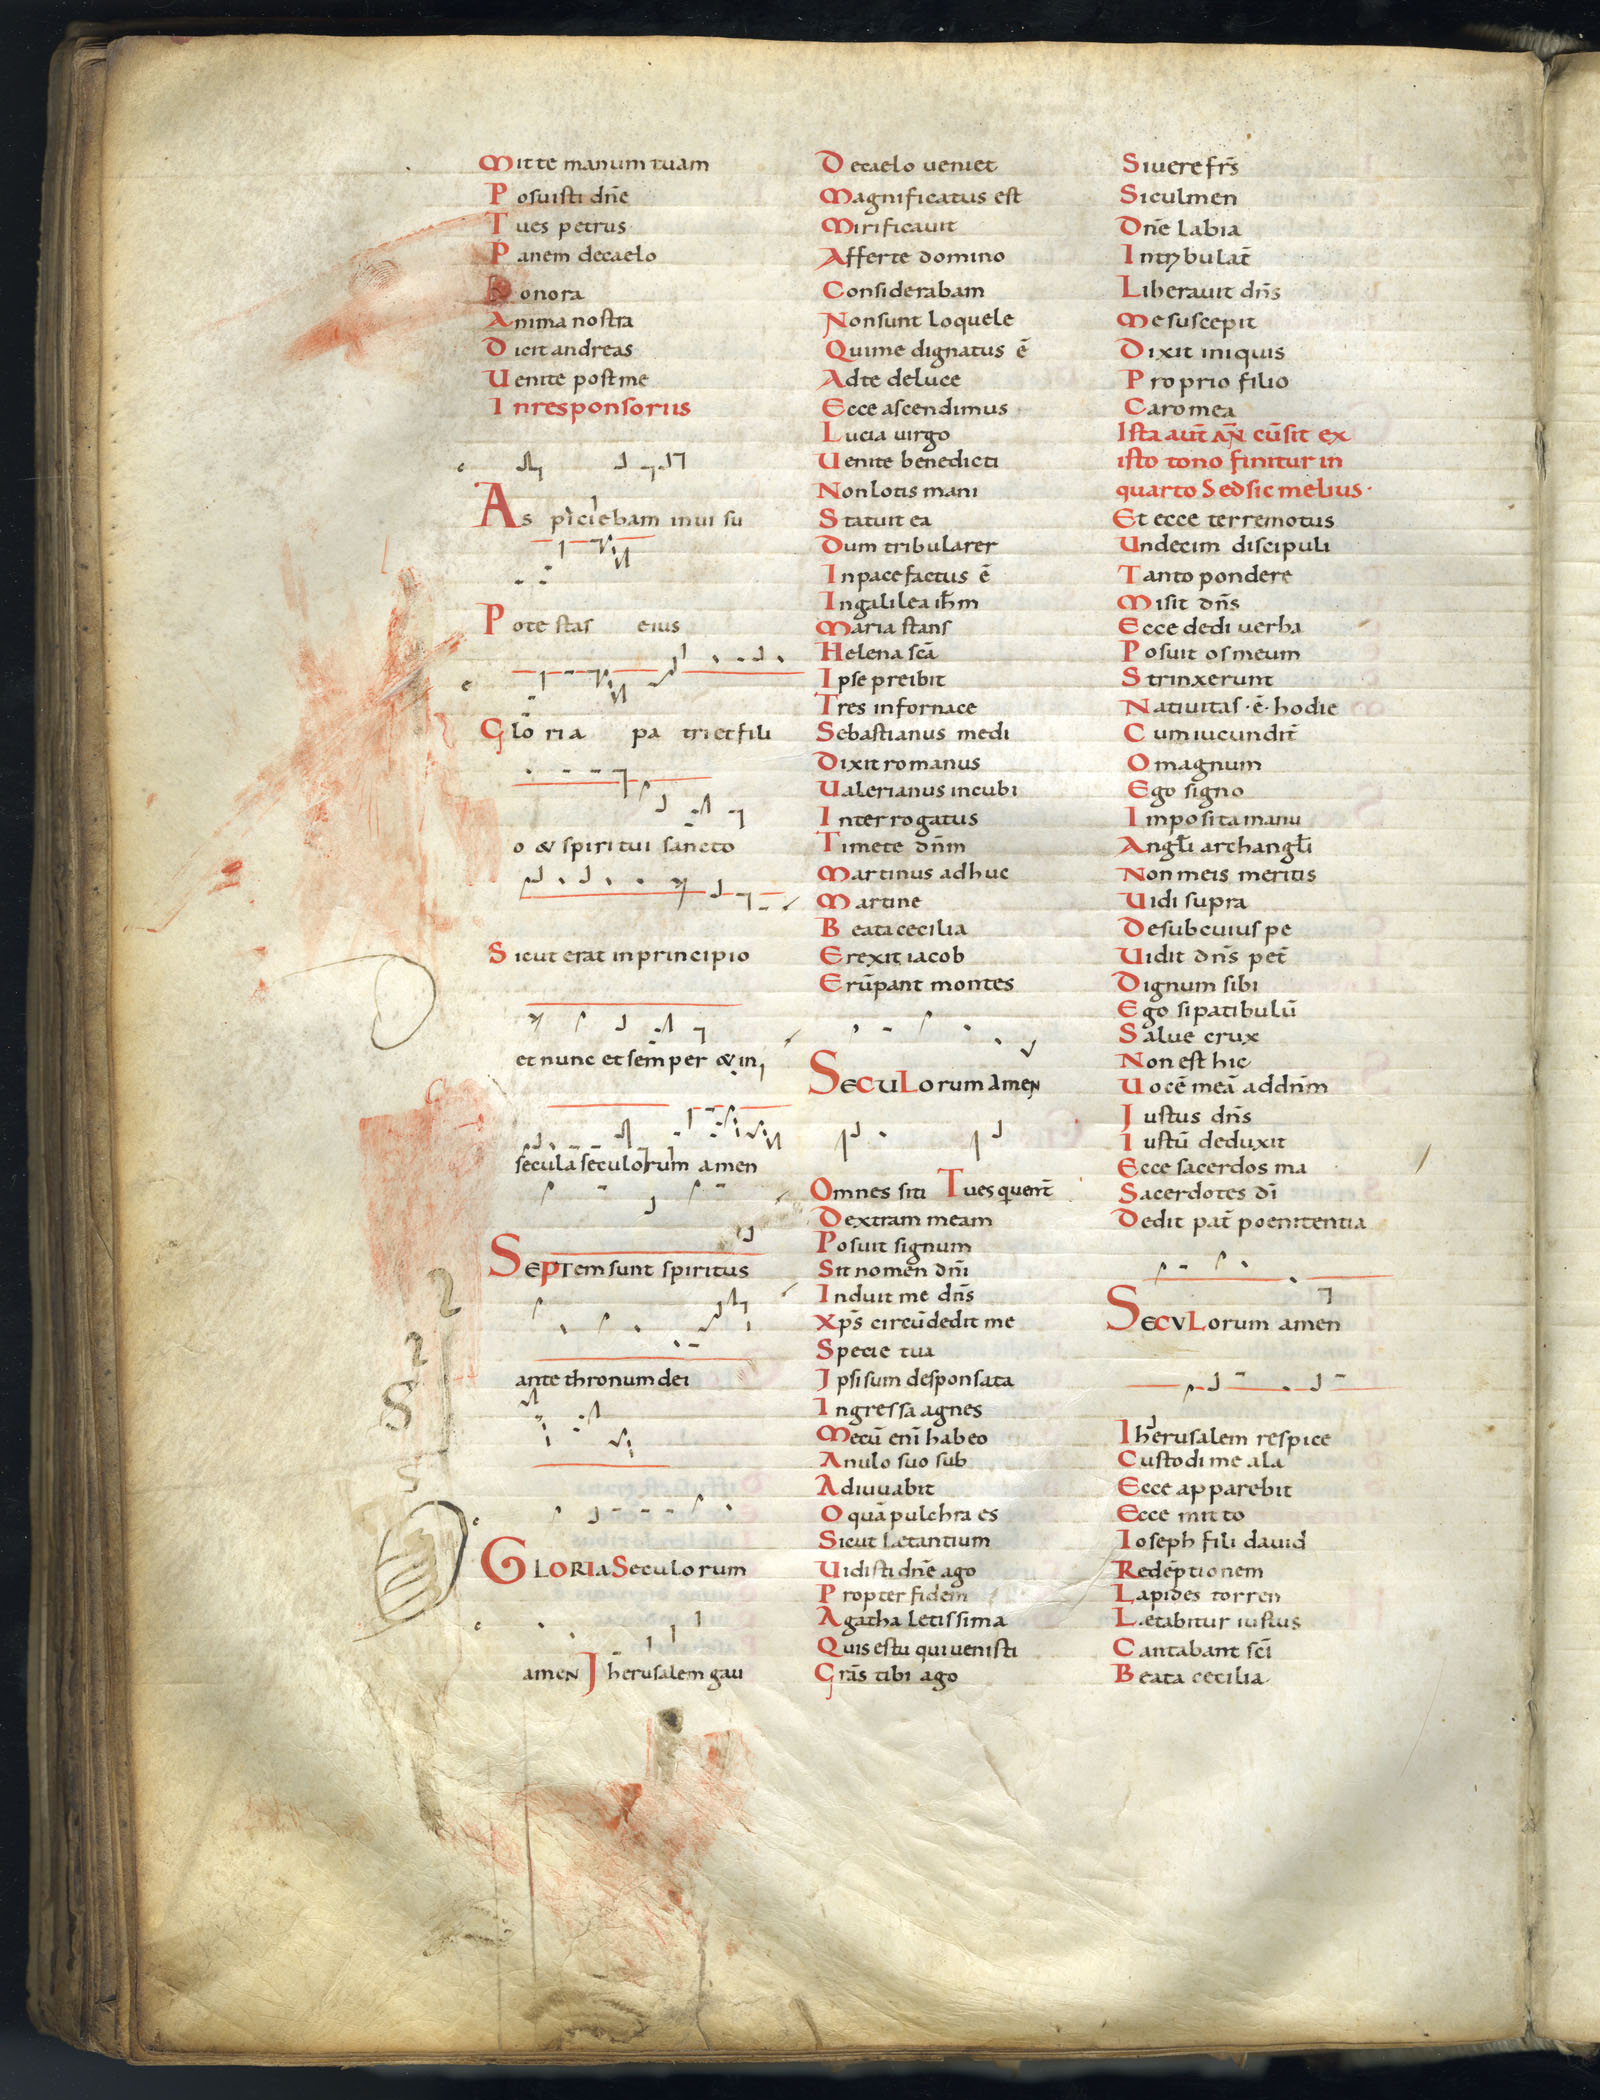 Mitte manum tuam
Posuisti dn̄e
Tu es petrus
Panem de caelo
Bonora
Anima nostra
Dicit andreas
Uenite post me
In responsoriis
Aspiciebam in ui su
Potestas eius
Gloria pa tri et fili
o & spiritui sancto
Sicut erat in principio
et nunc et semper & in
secula seculorum amen
Septem sunt spiritus
ante thronum dei
Gloria Seculorum
amen Jherusalem gau
De caelo ueniet
Magnificatus est
Mirificauit
Afferte domino
Considerabam
Non sunt loquele
Qui me dignatus ē
Ad te de luce
Ecce ascendimus
Lucia uirgo
Uenite benedicti
Non lotis mani
Statuit ea
Dum tribularer
In pace factus ē
In galilea ih̄m
Maria stans
Helena sc̄a
Ipse preibit
Tres in fornace
Sebastianus medi
Dixit romanus
Ualerianus in cubi
Interrogatus
Timete dn̄m
Martinus adhuc
Martine
Beata cecilia
Erexit iacob
Erūpant montes
Seculorum amen
Omnes siti Tu es q̄uenit̄
Dextram meam
Posuit signum
Sit nomen dn̄i
Induit me dn̄s
Xp̄s circūdedit me
Specie tua
Ipsi sum desponsata
Ingressa agnes
Mecū eni habeo
Anulo suo sub
Adiuuabit
O quā pulchra es
Sicut Lætantium
Uidisti dn̄e ago
Propter fidem
Agatha letissima
Quis es tu qui uenisti
Grās tibi ago
Si uere fr̄s
Si culmen
Dn̄e Labia
In tribulat̄
Liberauit dn̄s
Me suscepit
Dixit iniquis
Proprio filio
Caro mea
Ista aut̄ an̄ cū sit ex
isto tono finitur in
quarto Sed sic melius.
Et ecce terremotus
Undecim discipuli
Tanto pondere
Misit dn̄s
Ecce dedi uerba
Posuit os meum
Strinxerunt
Natiuitas · ē · hodie
Cum iucundit̄
O magnum
Ego signo
Imposita manu
Angl̄i archangl̄i
Non meis meritis
Uidi supra
De sub cuius pe
Uidit dn̄s pet̄
Dignum sibi
Ego si patibulū
Salue crux
Non est hic
Uocē meā ad dn̄m
Justus dn̄s
Iustū deduxit
Ecce sacerdos ma
Sacerdotes dī
Dedit pat̄ poenitentia
Seculorum amen
Iherusalem respice
Custodi me a la
Ecce apparebit
Ecce mitto
Ioseph fili dauid
Redēptionem
Lapides torren
Lætabitur iustus
Cantabant sc̄i
Beata cecilia